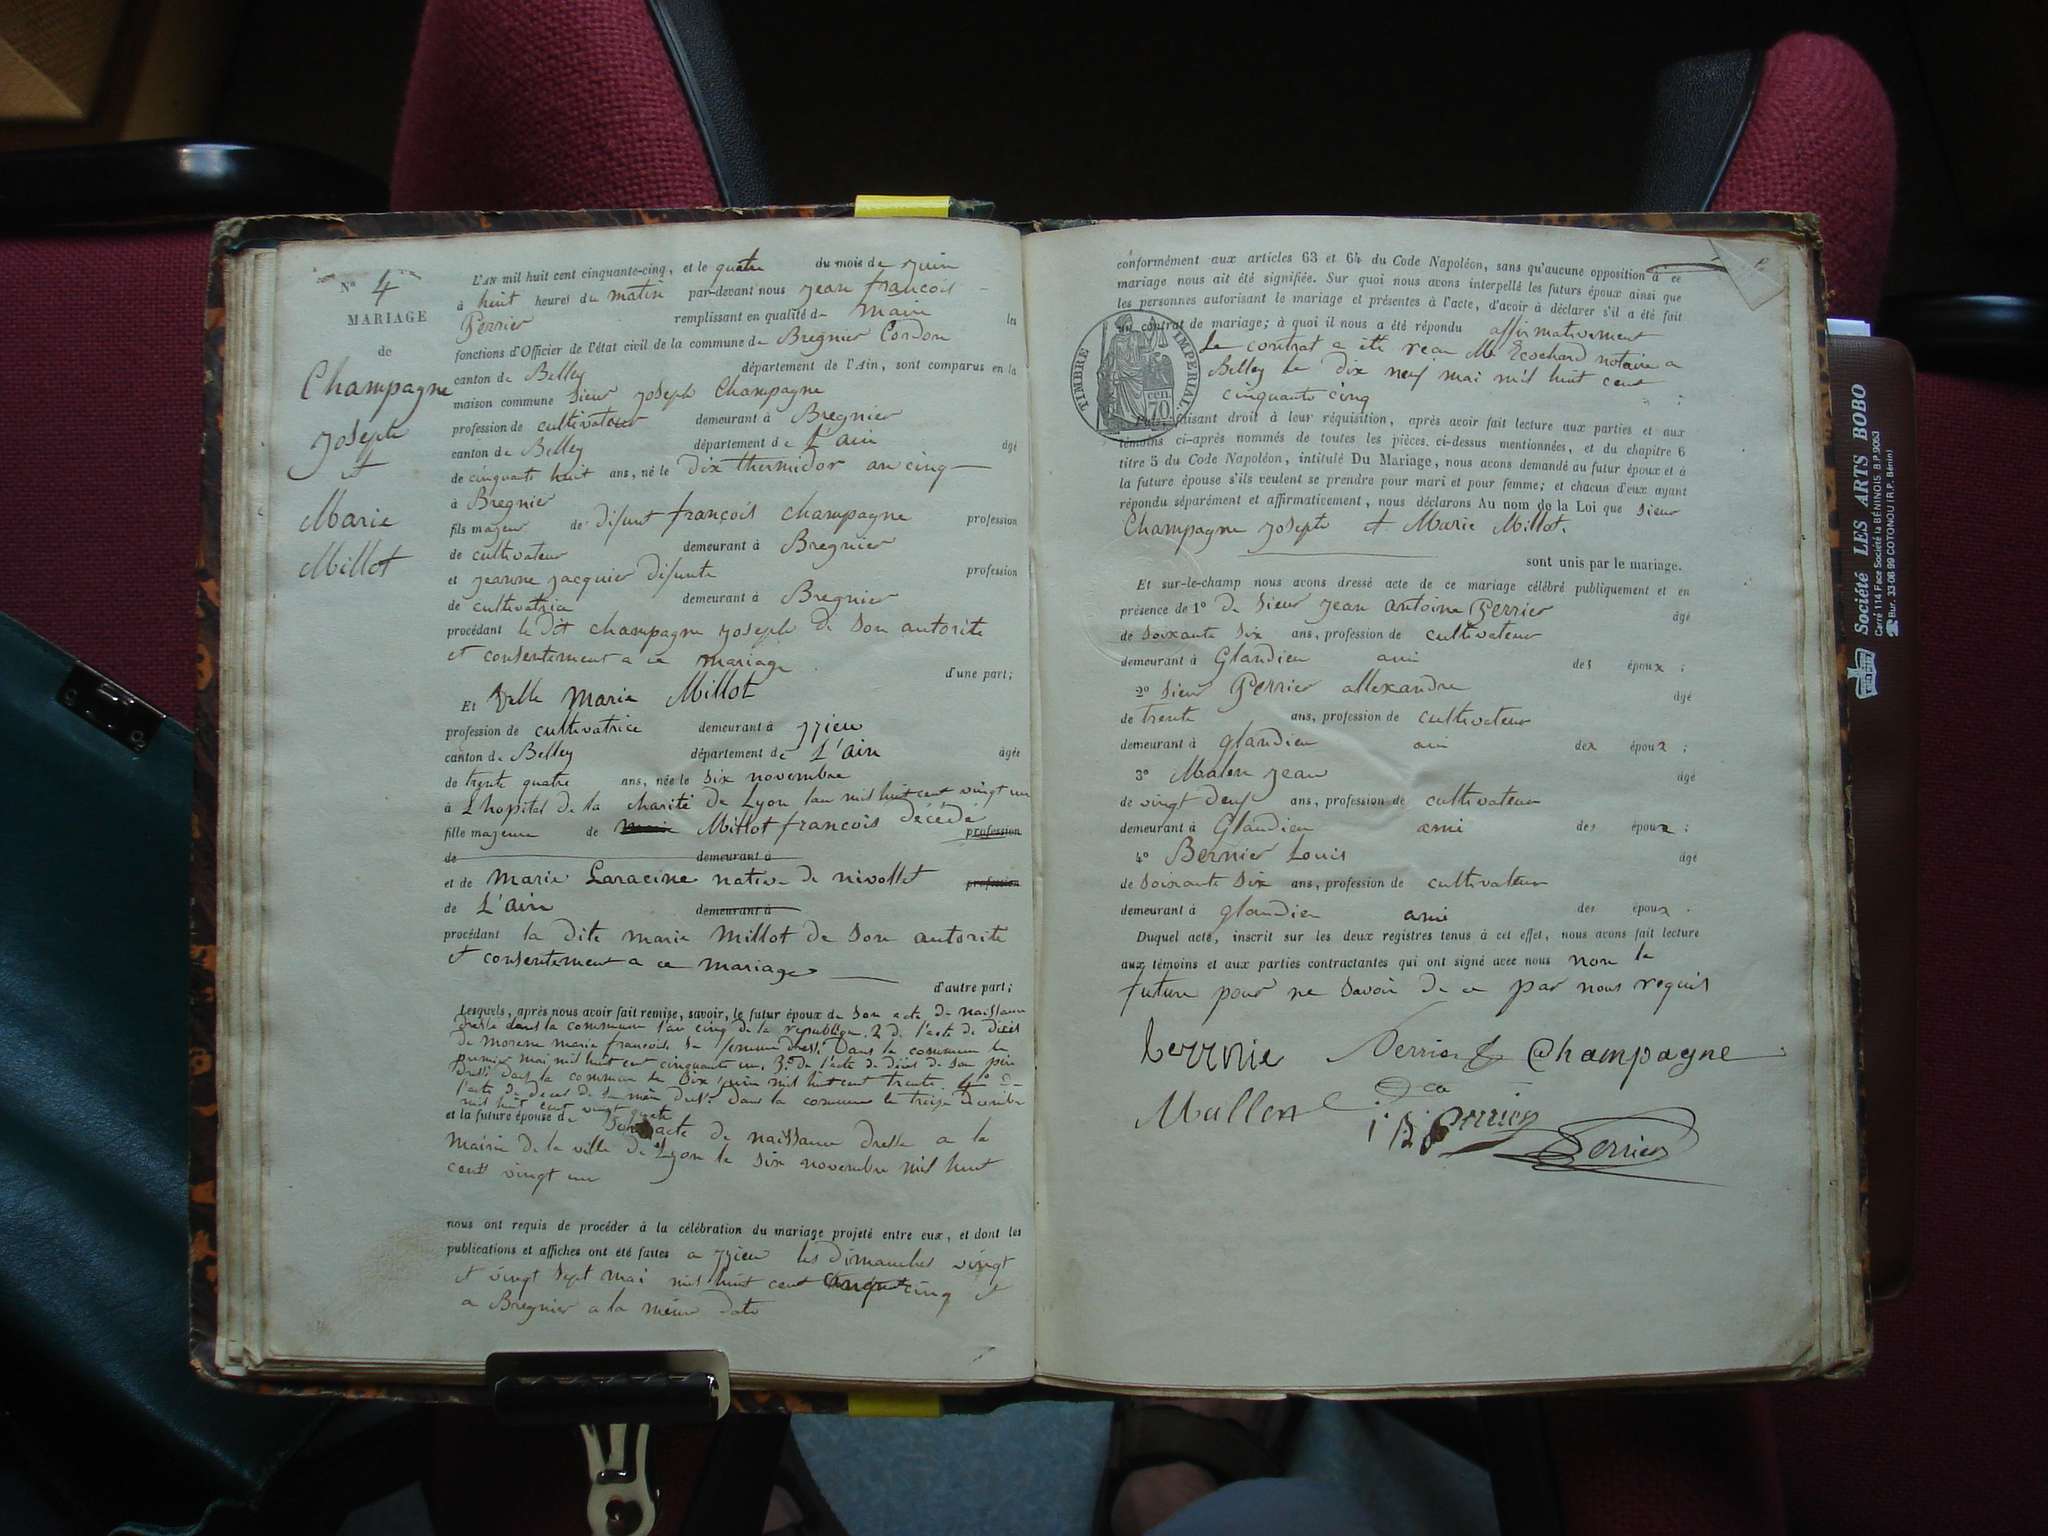 N° 4
MARIAGE
de
Champagne
Joseph
et
Marie
Millot
L'AN mil huit cent cinquante-cinq, et le quatre du mois de juin
à huit heures du matin par-devant nous jean francois
Perrier remplissant en qualité de maire les
fonctions d'Officier de l'état civil de la commune de Bregnier Cordon
canton de Belley département de l'Ain, sont comparus en la
maison commune Sieur joseph Champagne
profession de cultivateur demeurant à Bregnier
canton de Belley département de L'ain âgé
de cinquante huit ans, né le Dix thermidor an cinq
à Bregnier
fils majeur de Difunt françois champagne profession
de cultivateur demeurant à Bregnier
et jeanne jacquier Difunte profession
de cultivatrice demeurant à Bregnier
procédant le Dit champagne joseph de Son autorite
et consentement a ce mariage
d'une part;
Et Delle Marie Millot
profession de cultivatrice demeurant à yzieu
canton de Belley département de L'ain âgée
de trente quatre ans, née le Six novembre
à L'hopital de la charité de Lyon l'an mil huit cent vingt un
fille majeure de Millot francois décédé profession
de demeurant à
et de Marie Laracine native de nivollet profession
de L'ain demeurant à
procédant la dite marie Millot de Son autorite
et consentement a ce mariage
d'autre part;
Lesquels, après nous avoir fait remise, savoir, le futur époux de Son acte de naissance
dressé dans la commune l'an cinq de la republique. 2 d. l'acte de décès
de morene marie francoise Sa femme dressé Dans la commune le
premier mai mil huit cent cinquante un. 3° de l'acte de décès de Son père
Dressé dans la commune le Dix juin mil huit cent trente. 4° de
l'acte de deces de Sa mère dressé dans la commune le treize decembre
mil huit cent vingt quatre
et la future épouse de Son acte de naissance dresse a la
Mairie de la ville de Lyon le Six novembre mil huit
cent vingt un
nous ont requis de procéder à la célébration du mariage projeté entre eux, et dont les
publications et affiches ont été faites a yzieu les Dimanches vingt
et vingt Sept mai mil huit cent cinquante cinq et
a Bregnier a la même date
conformément aux articles 63 et 64 du Code Napoléon, sans qu'aucune opposition à ce
mariage nous ait été signifiée. Sur quoi nous avons interpellé les futurs époux ainsi que
les personnes autorisant le mariage et présentes à l'acte, d'avoir à déclarer s'il a été fait
un contrat de mariage; à quoi il nous a été répondu affirmativement
Le contrat a été reçu Me Ecochard notaire a
Belley le dix neuf mai mil huit cent
cinquante cinq
TIMBRE IMPERIAL.
70 cen.
Puis, faisant droit à leur réquisition, après avoir fait lecture aux parties et aux
témoins ci-après nommés de toutes les pièces ci-dessus mentionnées, et du chapitre 6
titre 5 du Code Napoléon, intitulé Du Mariage, nous avons demandé au futur époux et à
la future épouse s'ils veulent se prendre pour mari et pour femme; et chacun d'eux ayant
répondu séparément et affirmativement, nous déclarons Au nom de la Loi que Sieur
Champagne joseph et Marie Millot.
sont unis par le mariage.
Et sur-le-champ nous avons dressé acte de ce mariage célébré publiquement et en
présence de 1° De Sieur jean antoine Perrier âgé
de Soixante Six ans, profession de cultivateur
demeurant à Glandieu ami des époux ;
2° Sieur Perrier allexandre âgé
de trente ans, profession de cultivateur
demeurant à glandieu ami des époux ;
3° Malen jean âgé
de vingt deux ans, profession de cultivateur
demeurant à Glandieu ami des époux ;
4° Bernier Louis âgé
de Soixante Six ans, profession de cultivateur
demeurant à glandieu ami des époux .
Duquel acte, inscrit sur les deux registres tenus à cet effet, nous avons fait lecture
aux témoins et aux parties contractantes qui ont signé avec nous non la
future pour ne Savoir de ce par nous requis
Perrier Champagne
Mallen
Perrier
Perrier
Société LES ARTS BOBO
Carré 114 Face Société la BÉNINOIS B.P. 9063
Bur. 33 08 99 COTONOU (R.P. Bénin)